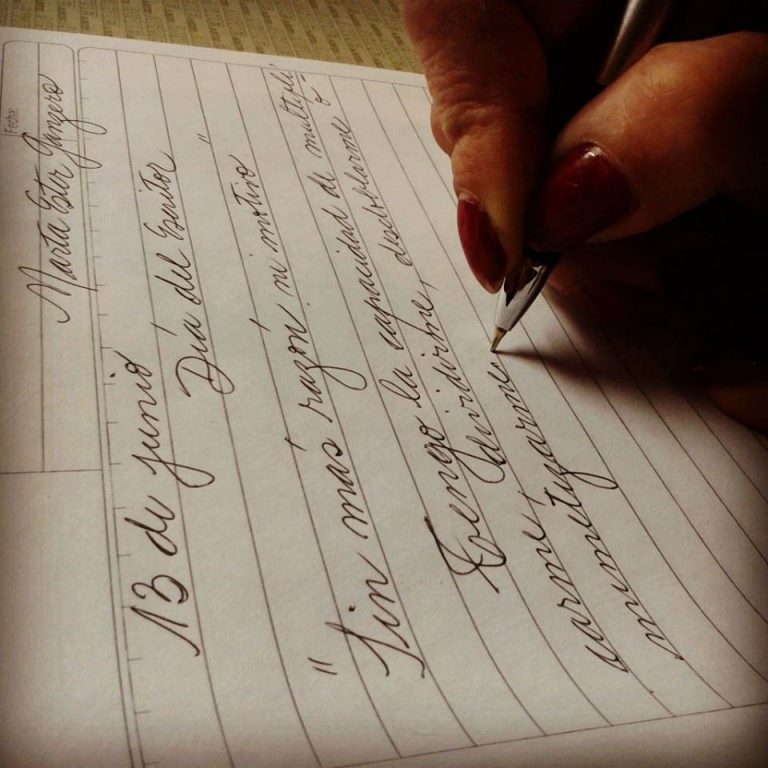 Fecha:
Marta Ester Ganzero
13 de junio
Día del Escritor
"Sin más razón ni motivo"
Tengo la capacidad de multipli-
carme, dividirme, desdoblarme o
mimetizarme